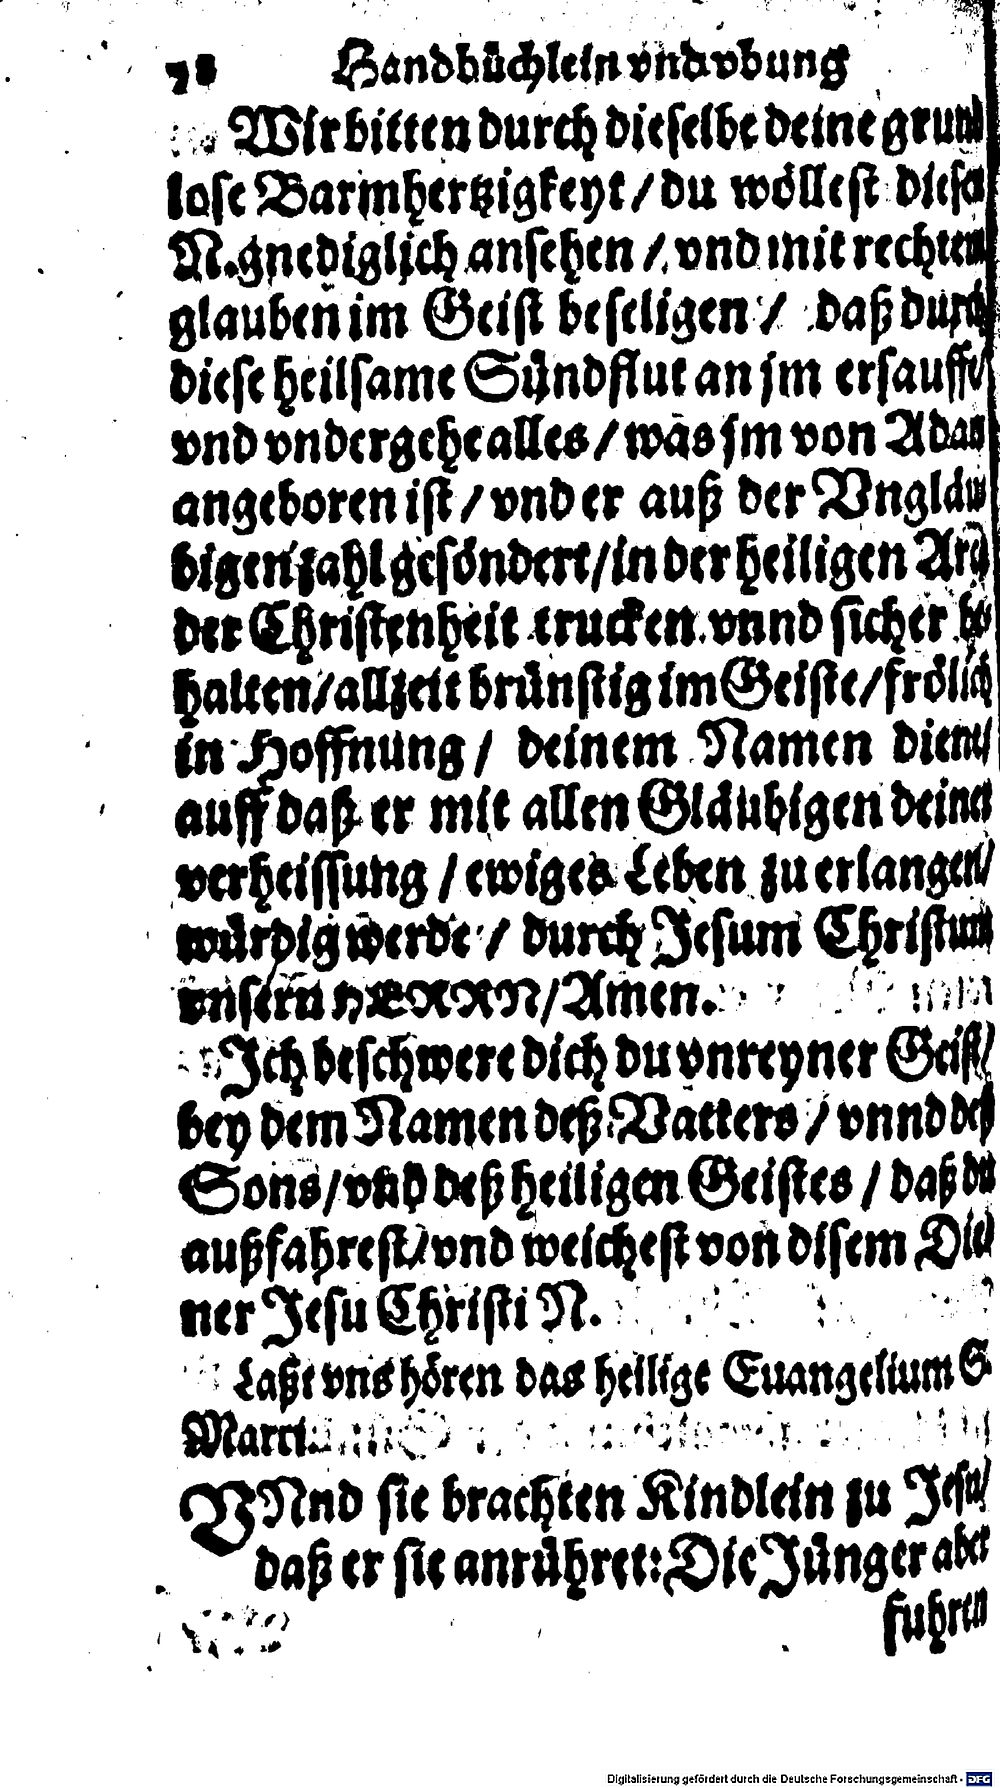 78 Handbüchlein vnd vbung
Wir bitten durch dieselbe deine grund
lose Barmhertzigkeyt / du wöllest disen
N. gnediglich ansehen / vnd mit rechtem
glauben im Geist beseligen / daß durch
diese heilsame Sündflut an jm ersauffe /
vnd vndergehe alles / was jm von Adam
angeboren ist / vnd er auß der Vngläu
bigen zahl gesöndert / in der heiligen Arch
der Christenheit trucken vnnd sicher be
halten / allzeit brünstig im Geiste / frölich
in Hoffnung / deinem Namen diene /
auff daß er mit allen Gläubigen deiner
verheissung / ewiges Leben zu erlangen /
würdig werde / durch Jesum Christum
vnsern HERRN / Amen.
Ich beschwere dich du vnreyner Geist /
bey dem Namen deß Vatters / vnnd deß
Sons / vnd deß heiligen Geistes / daß du
außfahrest / vnd weichest von disem Die
ner Jesu Christi N.
Laßt vns hören das heilige Euangelium S.
Marci.
VNnd sie brachten Kindlein zu Jesu /
daß er sie anrühret: Die Jünger aber
fuhren
Digitalisierung gefördert durch die Deutsche Forschungsgemeinschaft - DFG